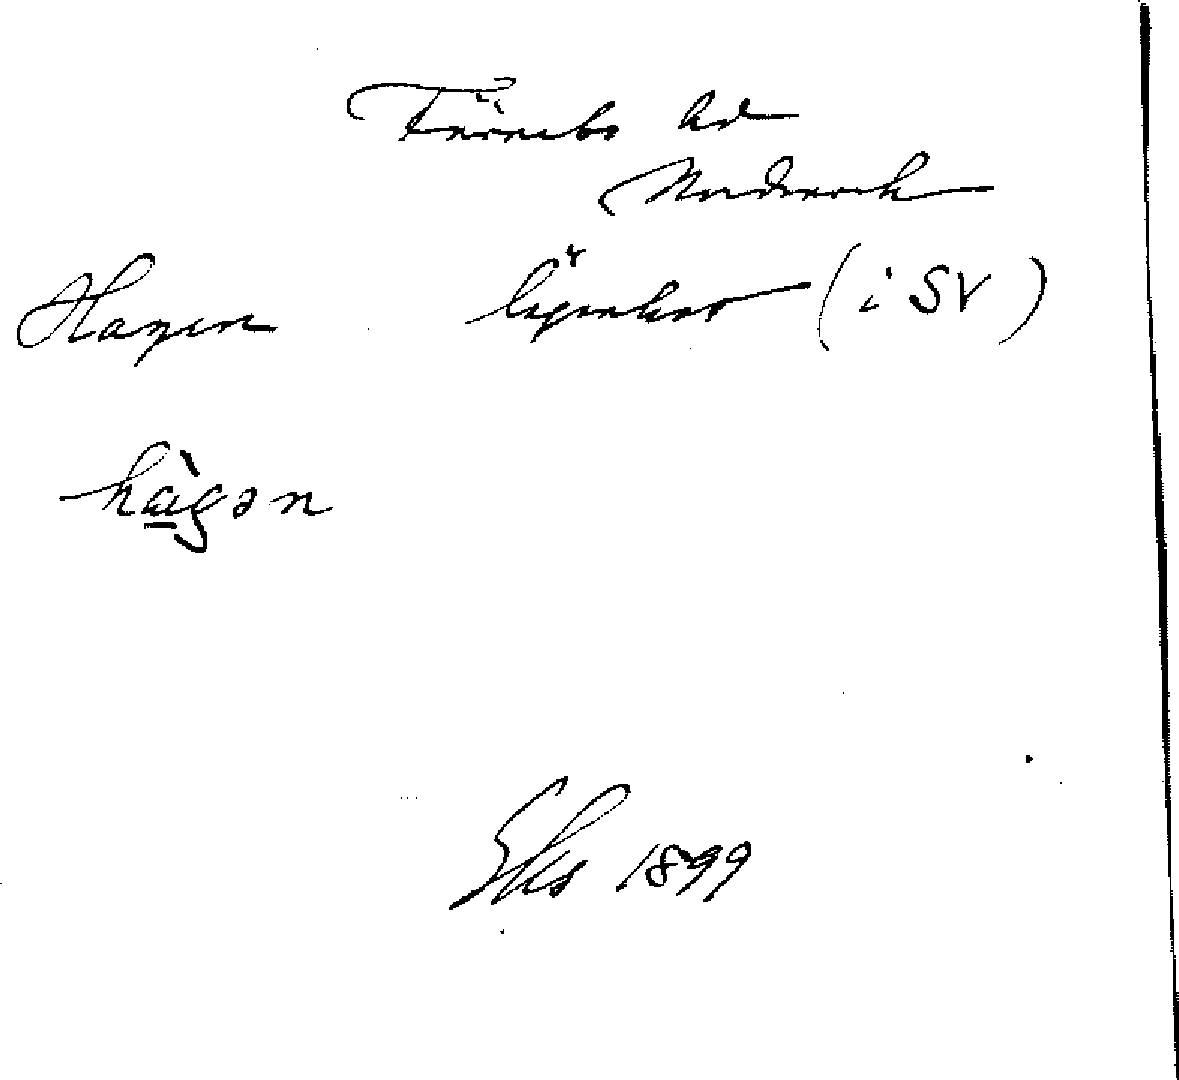 Färnebo hd
Nordmark
Hagen lägenhet (i SV)
hàgən
Eks 1899